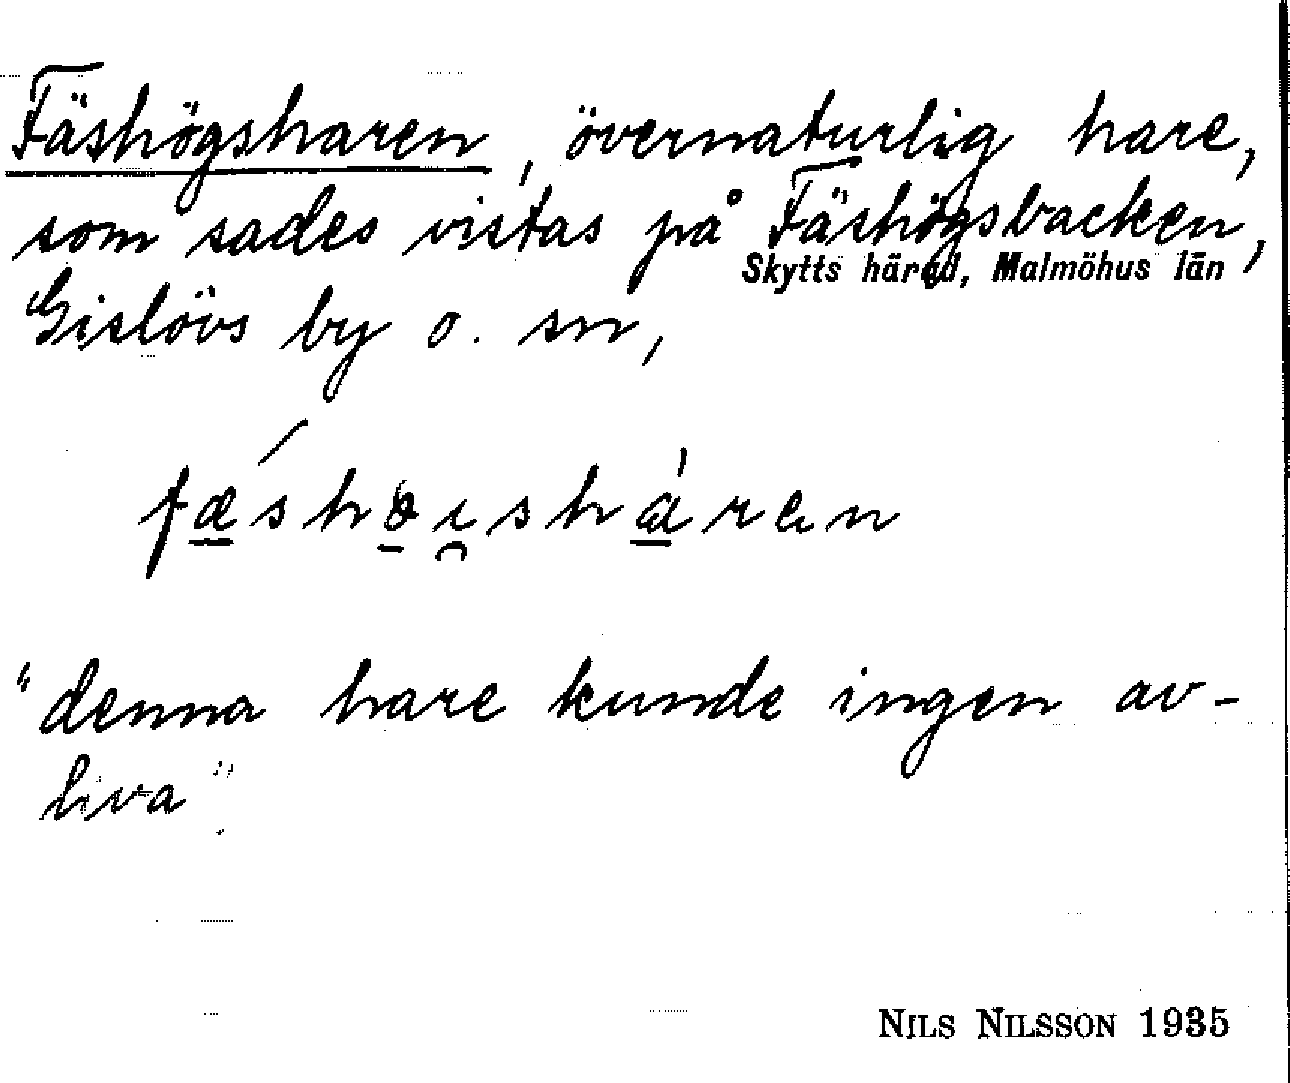 Fäshögsharen, övernaturlig hare,
som sades vistas på Fäshögsbacken,
Skytts härad, Malmöhus län
Gislövs by o. sn,
fæshøɪsharen
"denna hare kunde ingen av-
liva".
NILS NILSSON 1935